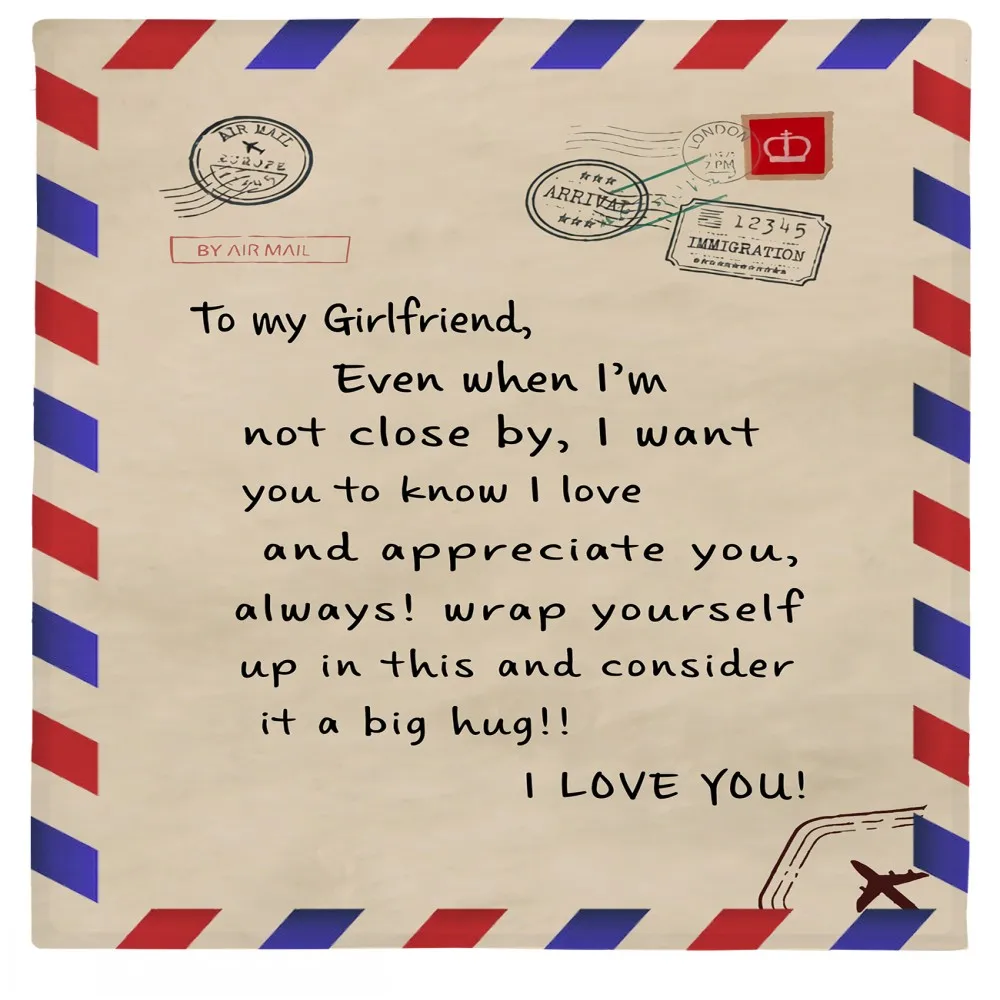 AIR MAIL
EUROPE
BY AIR MAIL
LONDON
7 PM
ARRIVAL
12345
IMMIGRATION
To my Girlfriend,
Even when I'm
not close by, I want
you to know I love
and appreciate you,
always! wrap yourself
up in this and consider
it a big hug!!
I LOVE YOU!